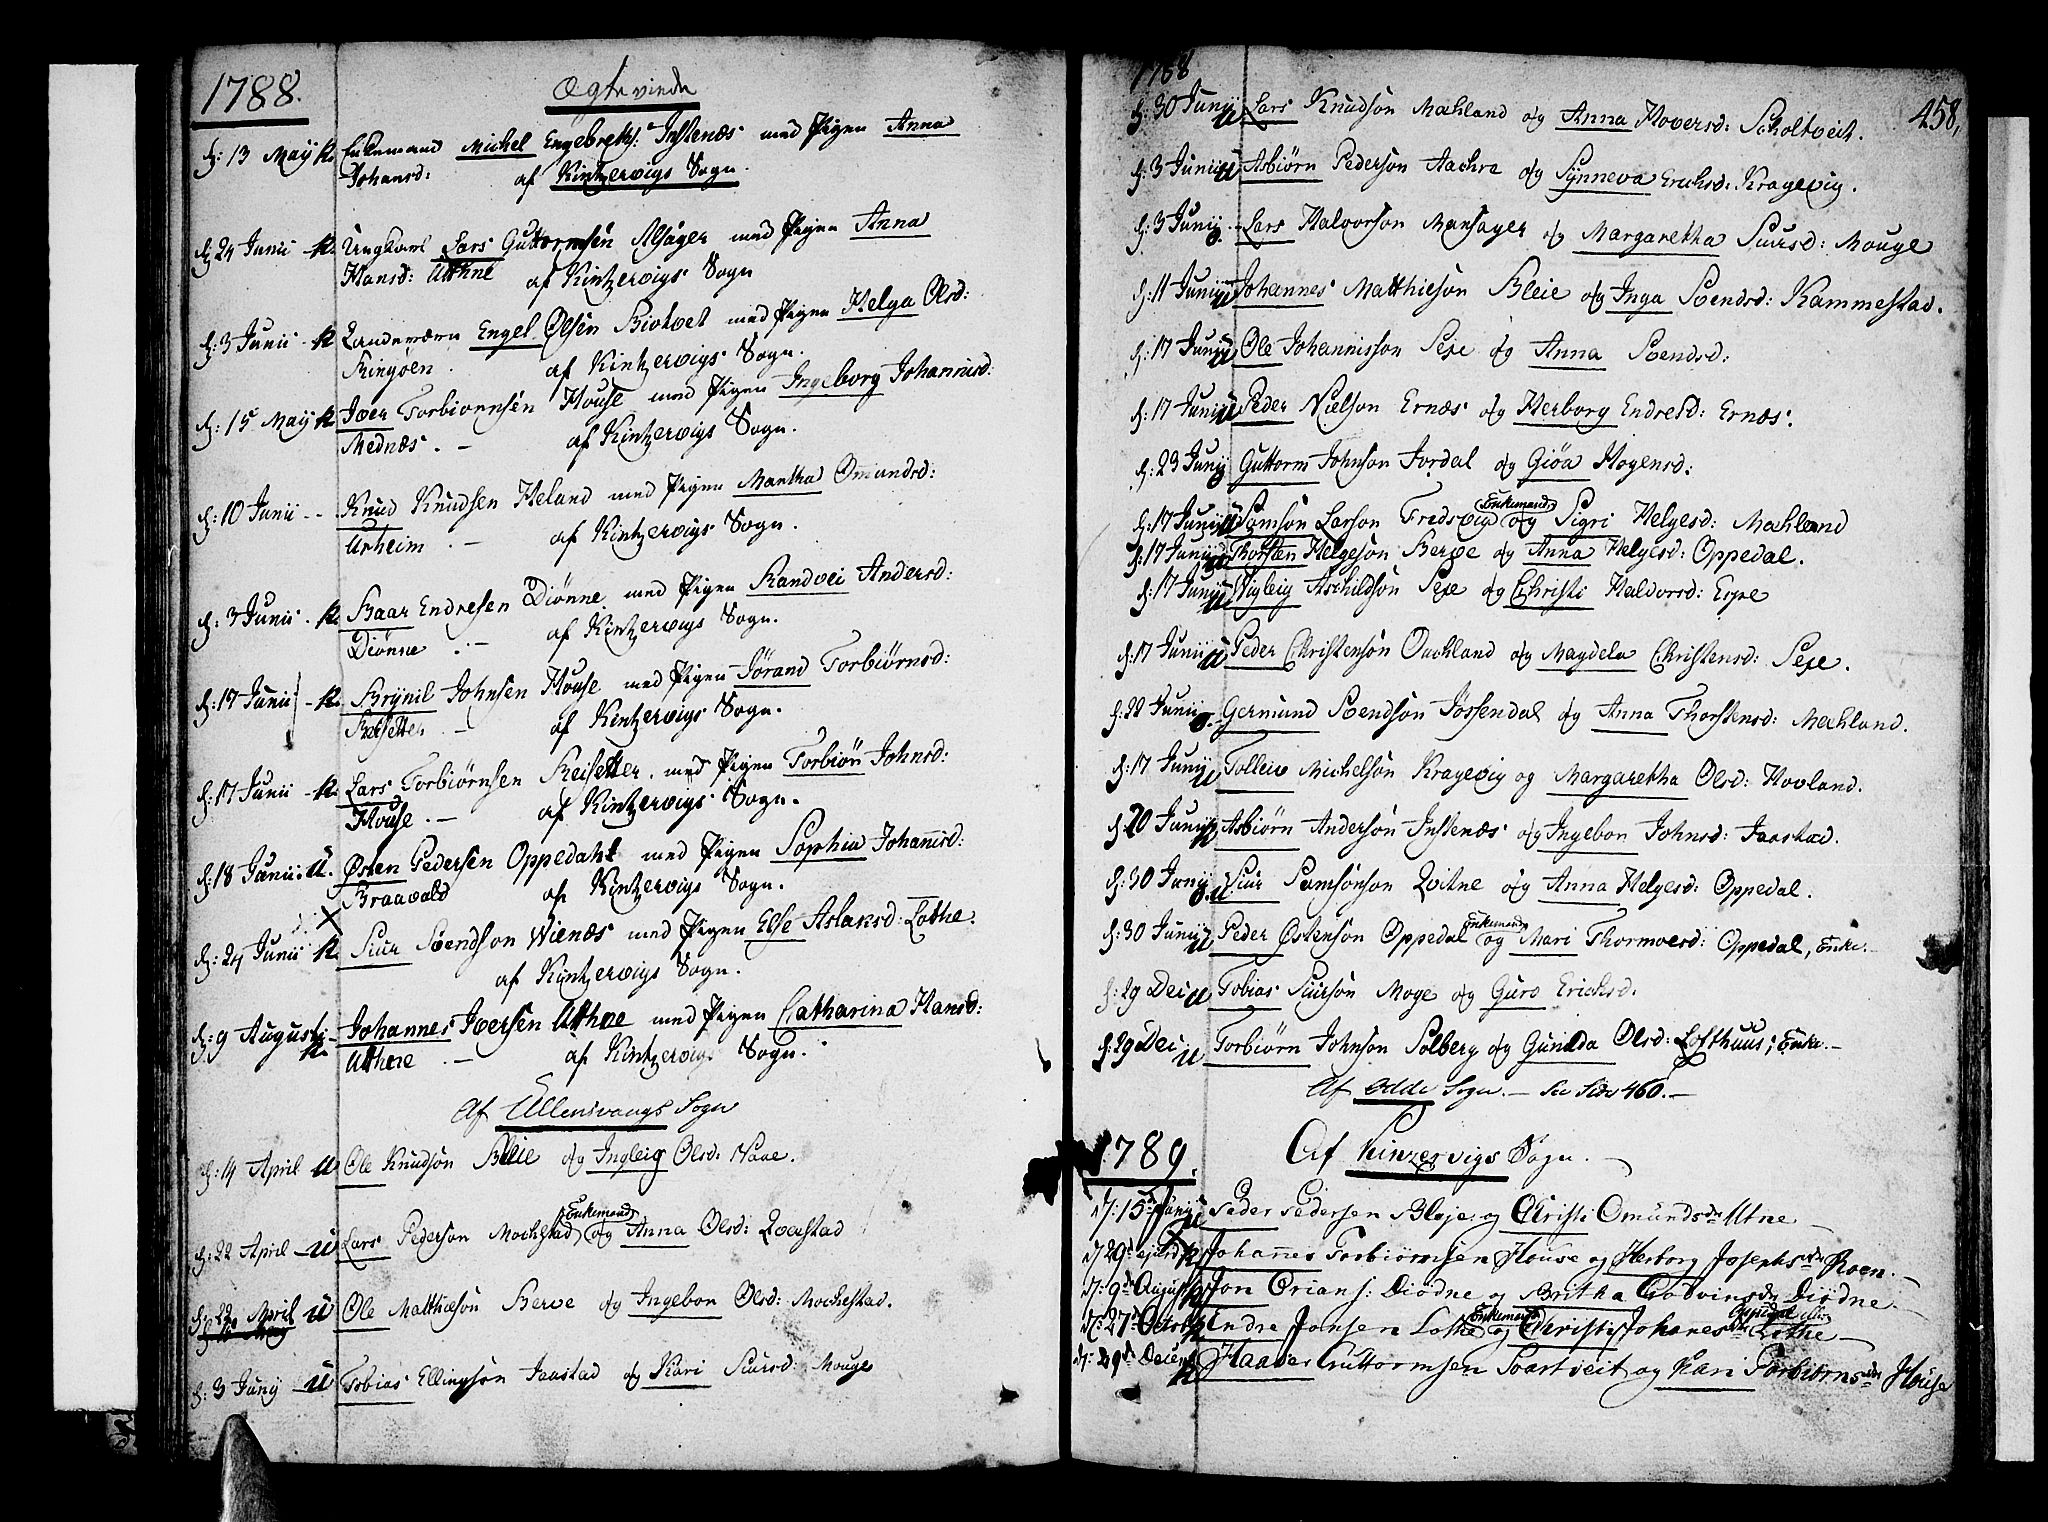 1788.
Ægteviede
d: 13 Maÿ k. Enkemand Michel Engebrets: Instenæs med Pigen Anna
Johansd: af Kintzervigs Sogn.
d: 24 Junii - k. Ungkarl Lars Guttormsen Alsager med Pigen Anna
Hansd: Utthne af Kintzervigs Sogn
d: 3 Junii - k Landeværn Engel Olsen Biotvet med Pigen Helga Olsd:
Ringøen. af Kintzervigs Sogn.
d: 15 Maÿ k. Iver Torbiørnsen House med Pigen Ingeborg Johannisd:
Mednæs. - af Kintzervigs Sogn.
d: 10 Junii - - Knud Knudsen Heland med Pigen Martha Omundsd:
Urheim. - af Kintzervigs Sogn.
d: 3 Junii - k. Baar Endresen Diønne med Pigen Randvei Andersd:
Diønne. - af Kintzervigs Sogn.
d: 17 Junii - k. Brÿnil Johnsen House med Pigen Jørand Torbiørnsd:
Reisetter - af Kintzervigs Sogn.
d: 17 Junii - k. Lars Torbiørnsen Reisetter. med Pigen Torbiør Johnsd:
House. - af Kintzervigs Sogn.
d: 18 Junii. u. Østen Pedersen Oppedahl med Pigen Sophia Johannisd:
Braavold af Kintzervigs Sogn.
d: 24 Junii k. Siur Svendson Wienæs med Pigen Else Aslaksd: Lothe.
af Kintzervigs Sogn.
d: 9 Augusti - k. Johannes Iversen Utthne med Pigen Catharina Hansd:
Utthne - af Kintzervigs Sogn.
Af Ullensvangs Sogn
d: 14 April u Ole Knudsón Bleie og Ingleig Olsd: Naae.
d: 22 April - u Lars Pederson Mochestad Enkemand og Anna Olsd: Qvæstad
d: 22 April u Ole Matthæsón Berve og Ingebor Olsd: Mochestad.
d: 3 Junÿ - u Tobias Ellingsón Jaastad og Kari Siursd: Mouge
1788
458,
d: 30 Junÿ u Lars Knudsón Mæhland og Anna Hoversd: Scholtveit.
d: 3 Junii u Asbiørn Pederson Aachre og Sÿnneva Erichsd: Kragevig.
d: 3 Junÿ o. Lars Halvorson Mansager og Margaretha Siursd: Mouge
d: 11 Junii u Johannes Matthiesón Bleie og Inga Svendsd: Hammestad.
d: 17 Junÿ u Ole Johannisson Sexe og Anna Svendsd:
d: 17 Junii u Peder Nielson Ernæs og Herborg Endresd: Ernæs.
d: 23 Junÿ o Guttorm Johnson Jordal og Giøa Hogensd:
d: 17 Junÿ u Samsón Larson Fredsvig Enkemand og Sigri Helgesd: Mæhland
d: 17 Junii u Thorsten Helgesón Berve og Anna Helgesd: Oppedal.
d: 17 Junÿ u Vigleig Aschildsón Sexe og Christi Haldorsd: Espe
d: 17 Junii u Peder Christensón Qvæhland og Magdela Christensd: Sexe.
d: 22 Junii o. Germund Svendsón Jøssendal og Anna Thorstensd: Mæhland.
d: 17 Junÿ u Tolleiv Michelsón Kragevig og Margaretha Olsd: Hovland.
d: 20 Junÿ k Asbiørn Andersón Instenæs og Ingebor Johnsd: Jaastad.
d: 30 Junÿ o. u Siur Samsónson Qvitne og Anna Helgesd: Oppedal.
d: 30 Junÿ u Peder Østensón Oppedal Enkemand og Mari Thormoesd: Oppedal, Enke. -
d: 29 Dec: u Tobias Siursón Moge og Guro Erichsd.
d: 29 Dec: u Torbiørn Johnson Solberg og Gunilda Olsd: Lofthuus; Enke. -
Af Odde Sogn. - See Side 460. -
1789.
Af Kinzervigs Sogn. -
d: 15 Junÿ u Peder Pedersen Bleje og Christi Omunds dr Utne -
d 29 ejusd k Johannes Torbiørnsen House og Herborg Josephs dr Roen. -
d: 9 de August k Jon Orians: Diødne og Britha Godvins dr Diødne -
d: 27 October k Endre Jonsen Lothe Enkemand og Christi Johanes dr Lothe - Oppedal
d: 29 Decemb k Haaver Guttormsen Svartveit og Kari Torbiørns dtr House